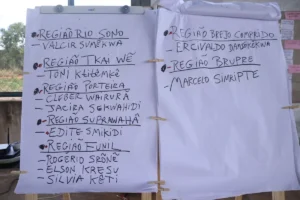 REGIÃO RIO SONO
- VALCIR SUMEKWA
REGIÃO TKAI WẼ
- TONI
REGIÃO PORTEIRA
- CLEBER WAIRURÃ
- JACIRA SEKWAHIDI
REGIÃO SUPRAWAHÃ
- EDITE SMIKIDI
REGIÃO FUNIL
- ROGERIO SRÕNẼ
- ELSON KRESU
- SILVIA KETI
REGIÃO BREJO COMPRIDO
- ERCIVALDO DAMSÕKẼKWA
REGIÃO BRUPRE
- MARCELO SIMRIPTE